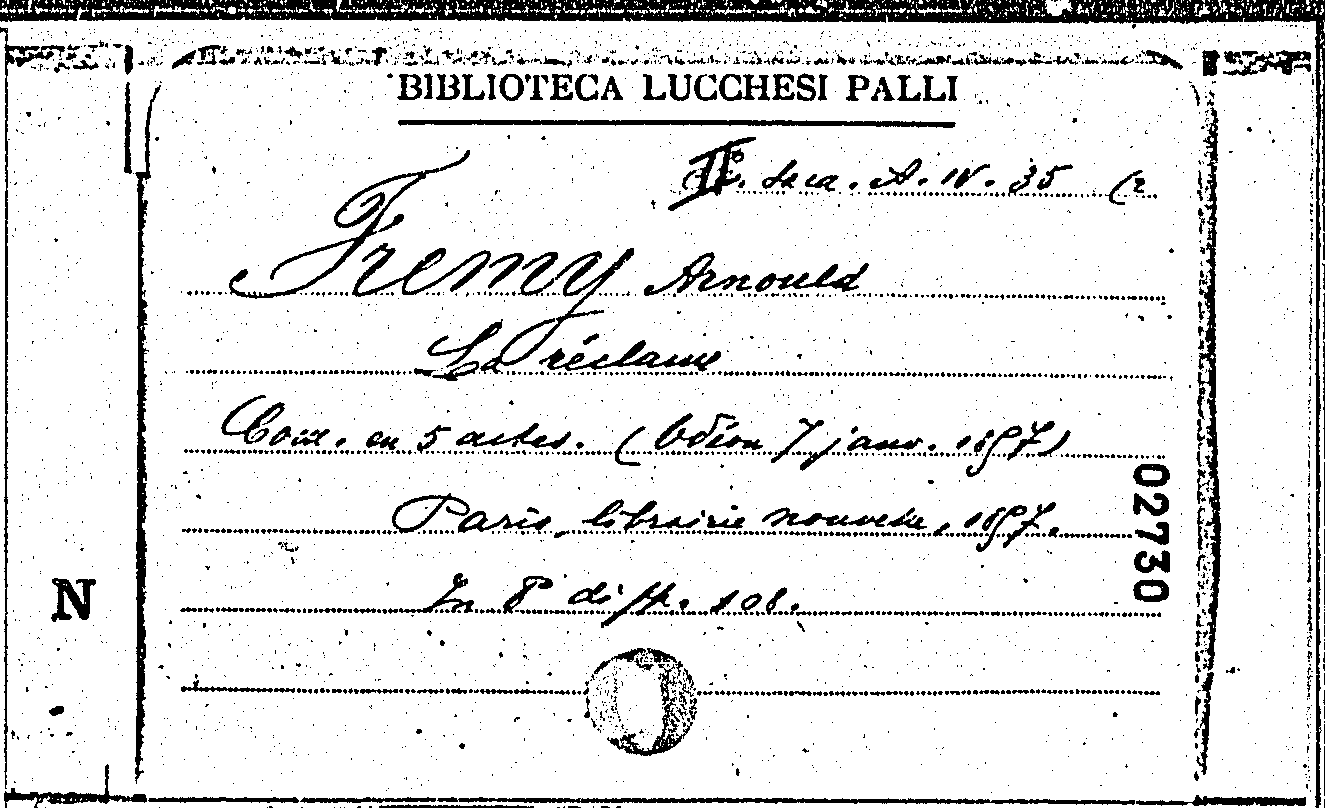 BIBLIOTECA LUCCHESI PALLI
II. Sca. A. IV. 35 (2
Fremy Arnould
La réclame
Com. en 5 actes. (Odéon 7 janv. 1857)
Paris, librairie nouvelle, 1857.
In 8° di pp. 108.
02730
N